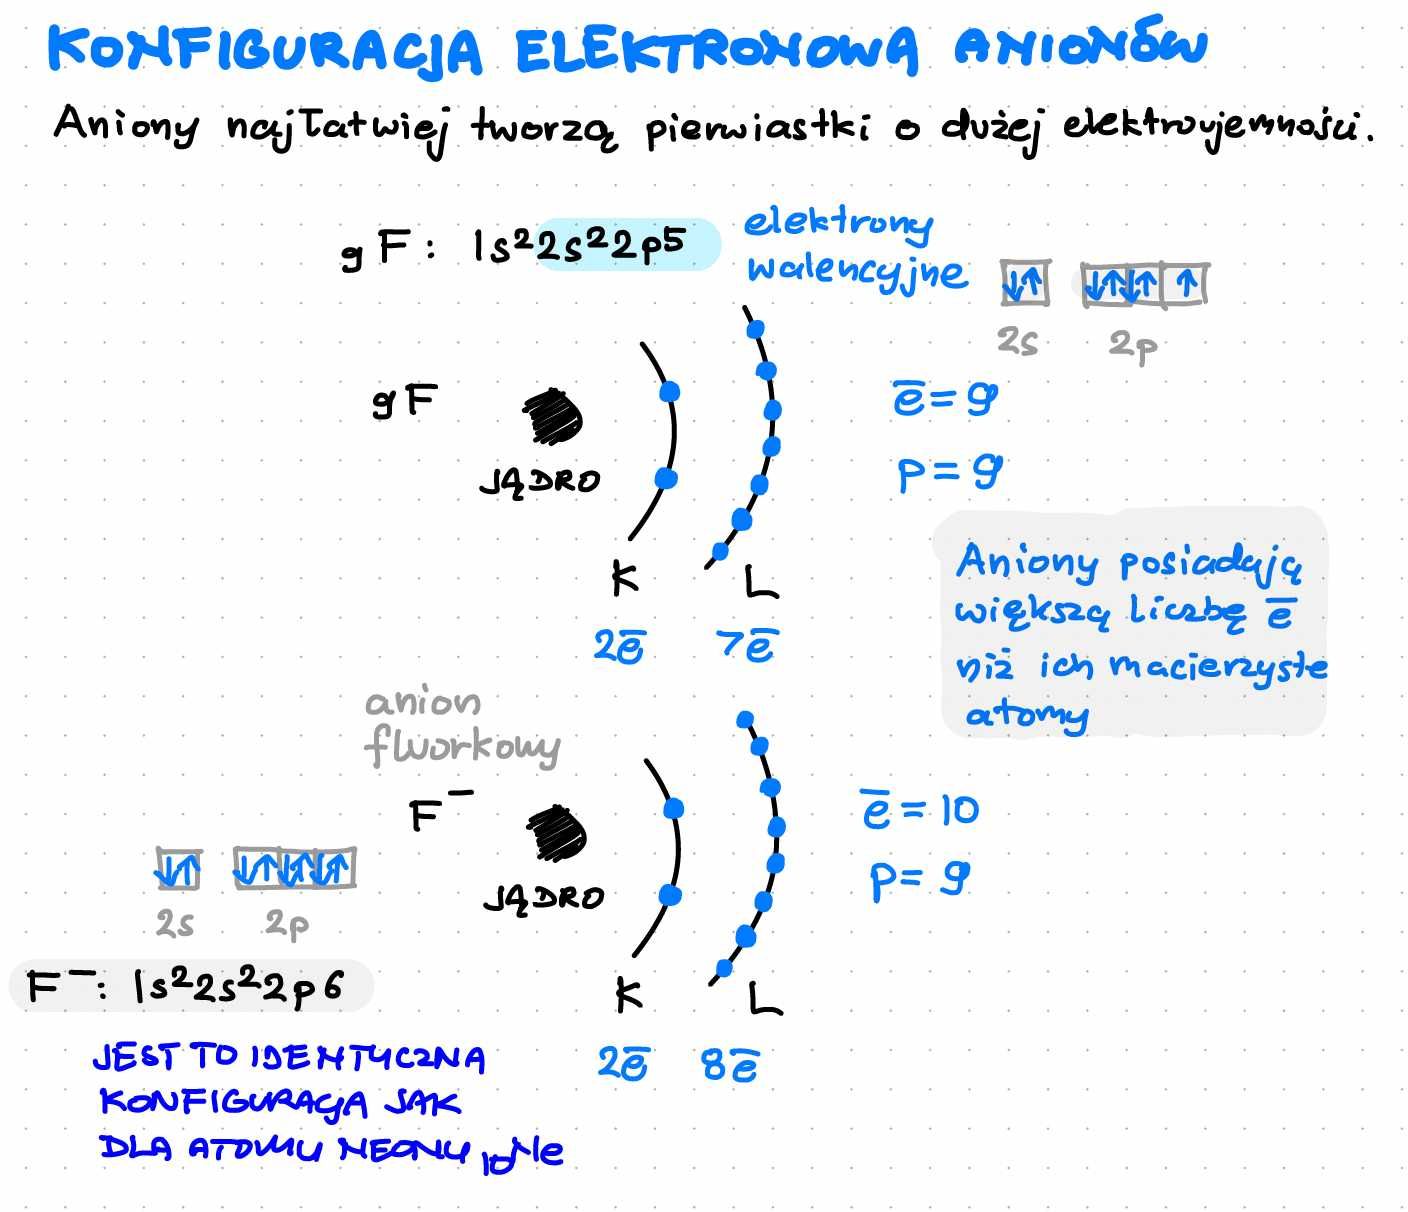 KONFIGURACJA ELEKTRONOWA ANIONÓW
Aniony najłatwiej tworzą pierwiastki o dużej elektroujemności.
₉F: 1s²2s²2p⁵
elektrony
walencyjne
2s 2p
₉F
JĄDRO
K L
2e̅ 7e̅
e̅ = 9
p = 9
Aniony posiadają
większą liczbę e̅
niż ich macierzyste
atomy
anion
fluorkowy
F⁻
JĄDRO
K L
2e̅ 8e̅
e̅ = 10
p = 9
2s 2p
F⁻: 1s²2s²2p6
JEST TO IDENTYCZNA
KONFIGURACJA JAK
DLA ATOMU NEONU ₁₀Ne